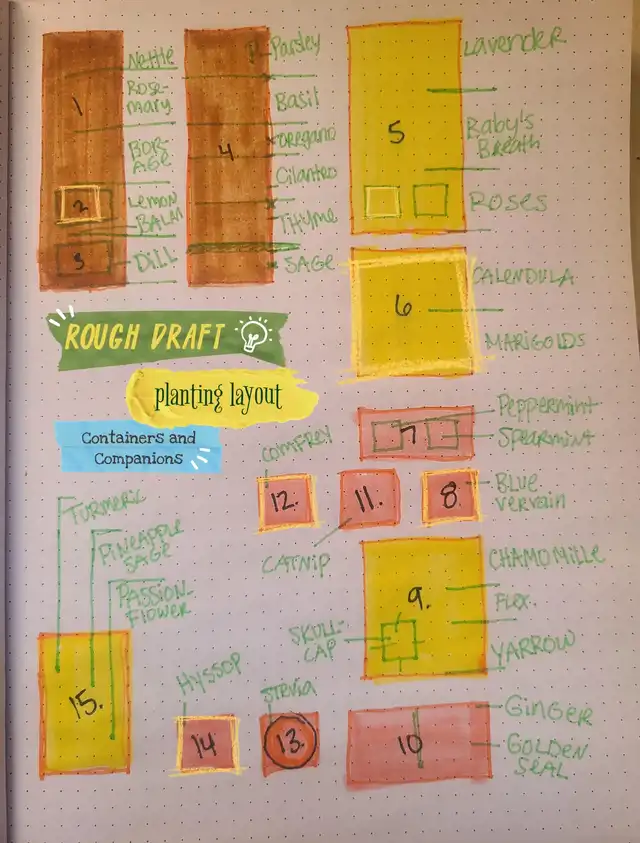 1
2
3
Nettle
Rose-
mary
Bor-
age
Lemon
Balm
Dill
4
P
Parsley
Basil
Oregano
Cilantro
Thyme
Sage
5
Lavender
Baby's
Breath
Roses
6
Calendula
Marigolds
ROUGH DRAFT
planting layout
Containers and
Companions
7
Peppermint
Spearmint
Comfrey
12.
11.
8.
Blue
Vervain
Catnip
Turmeric
Pineapple
Sage
Passion-
flower
15.
9.
Chamomille
Flex.
Skull-
cap
Yarrow
Hyssop
14
Stevia
13.
10
Ginger
Golden
Seal